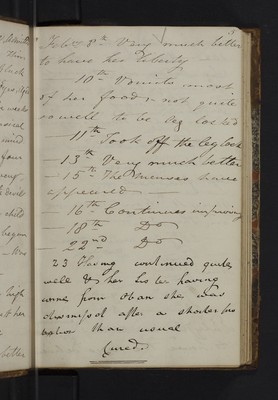 Feb 8th Very much better
to have her liberty
— 10th Vomits most
of her food & not quite
so well to be leg locked
— 11th Took off the leg lock
— 13th Very much better
— 15th The menses have
appeared —
— 16th Continues improving
— 18th Do
— 22nd Do
23 Having continued quite
well & her sister having
come from Oban she was
dismissed after a shorter pro
bation than usual
Cured.